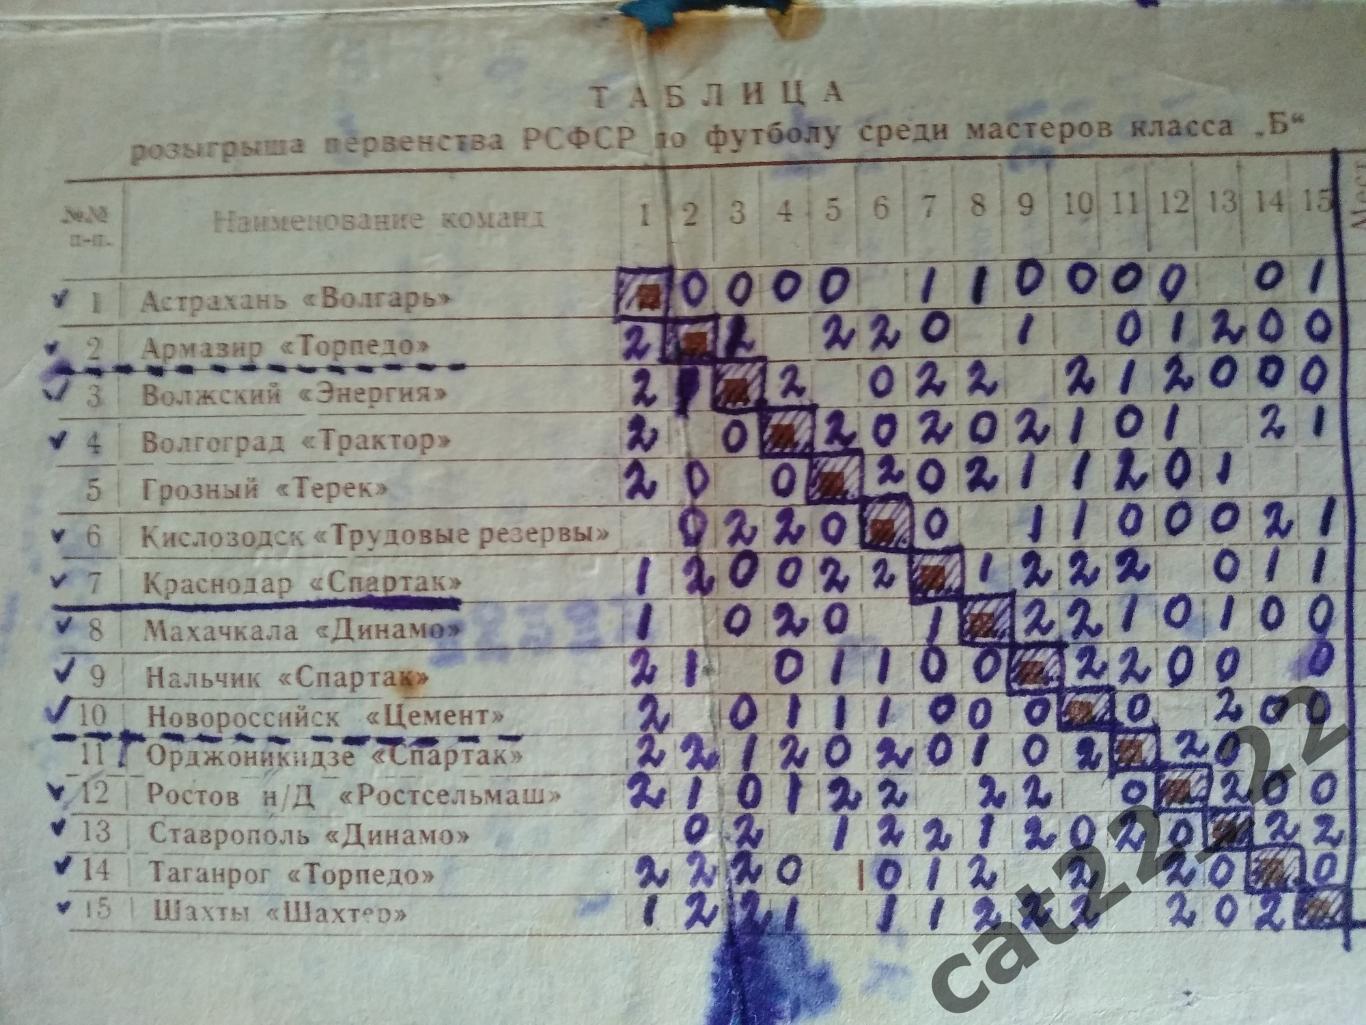 ТАБЛИЦА
розыгрыша первенства РСФСР по футболу среди мастеров класса „Б“
№№ п-п. Наименование команд 1 2 3 4 5 6 7 8 9 10 11 12 13 14 15
1 Астрахань «Волгарь» 0 0 0 0 1 1 0 0 0 0 0 1
2 Армавир «Торпедо» 2 2 2 0 1 0 1 2 0 0
3 Волжский «Энергия» 2 2 0 2 2 2 1 2 0 0 0
4 Волгоград «Трактор» 2 0 2 0 2 0 2 1 0 1 2 1
5 Грозный «Терек» 2 0 0 2 0 2 1 1 2 0 1
6 Кислозодск «Трудовые резервы» 0 2 2 0 0 1 1 0 0 0 2 1
7 Краснодар «Спартак» 1 2 0 0 2 2 1 2 2 2 0 1 1
8 Махачкала «Динамо» 1 0 2 0 1 2 2 1 0 1 0 0
9 Нальчик «Спартак» 2 1 0 1 1 0 0 2 2 0 0 0
10 Новороссийск «Цемент» 2 0 1 1 1 0 0 0 0 2 0 0
11 Орджоникидзе «Спартак» 2 2 1 2 0 2 0 1 0 2 2 0
12 Ростов н/Д «Ростсельмаш» 2 1 0 1 2 2 2 2 0 2 0 0
13 Ставрополь «Динамо» 0 2 1 2 2 1 2 0 2 0 2 2
14 Таганрог «Торпедо» 2 2 2 0 0 1 2 2 2 0 0
15 Шахты «Шахтер» 1 2 2 1 1 1 2 2 2 2 0 2
cat22_22